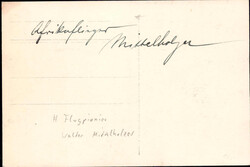 Afrikaflieger
Mittelholzer
# Flugpionier
Walter Mittelholzer